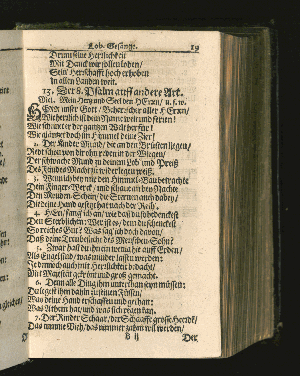 Lob-Gesänge. 19
Drum seine Herrlichkeit
Mit Danck wir sollen loben/
Sein Herrschafft hoch erhoben
In allen Landen weit.
13. Der 8. Psalm auff andere Art.
Mel. Mein Hertz und Seel den HErrn/ u. s. w.
HErr unser Gott/ Beherrscher aller HErrn/
Wie herrlich ist dein Nahm weit und ferrn!
Wie schaut er der gantzen Welt herfür!
Wie glänzet doch im Himmel deine Zier!
2. Der Kinder Mund/ die an den Brüsten liegen/
Redt schon von dir ohn reden in der Wiegen/
Der schwache Mund zu deinem Lob und Preiß
Des Feindes Macht zu widerlegen weiß.
3. Wenn ich bey mir den Himmels-Bau betrachte
Dein Finger-Werck/ und schaue an bey Nachte
Den Monden-Schein/ die Sternen auch dabey/
Die deine Hand gesetzt hat nach der Reih.
4. HErr/ sag ich an/ wie daß du so bedenckest
Den Sterblichen: Wer ist es/ dem du schenckest
So reiches Gut? Was sag ich doch davon/
Daß deine Treu besucht des Menschen Sohn?
5. Zwar hast du ihn ein wenig hie auff Erden/
Als Engel sind/ was minder lassen werden:
Jedennoch auch mit Herrlichkeit bedacht/
Mit Majestät gekrönt und groß gemacht.
6. Denn alle Ding ihm unterthan seyn müssen:
Du legest ihm dahin zu seinen Füssen/
Was deine Hand erschaffen und gethan:
Was Athem hat/ und was sich regen kan.
7. Der Rinder Schaar/ der Schaaffe grosse Heerde/
Das wilde Vieh/ das nimmer zahm wil werden/
B ij Der